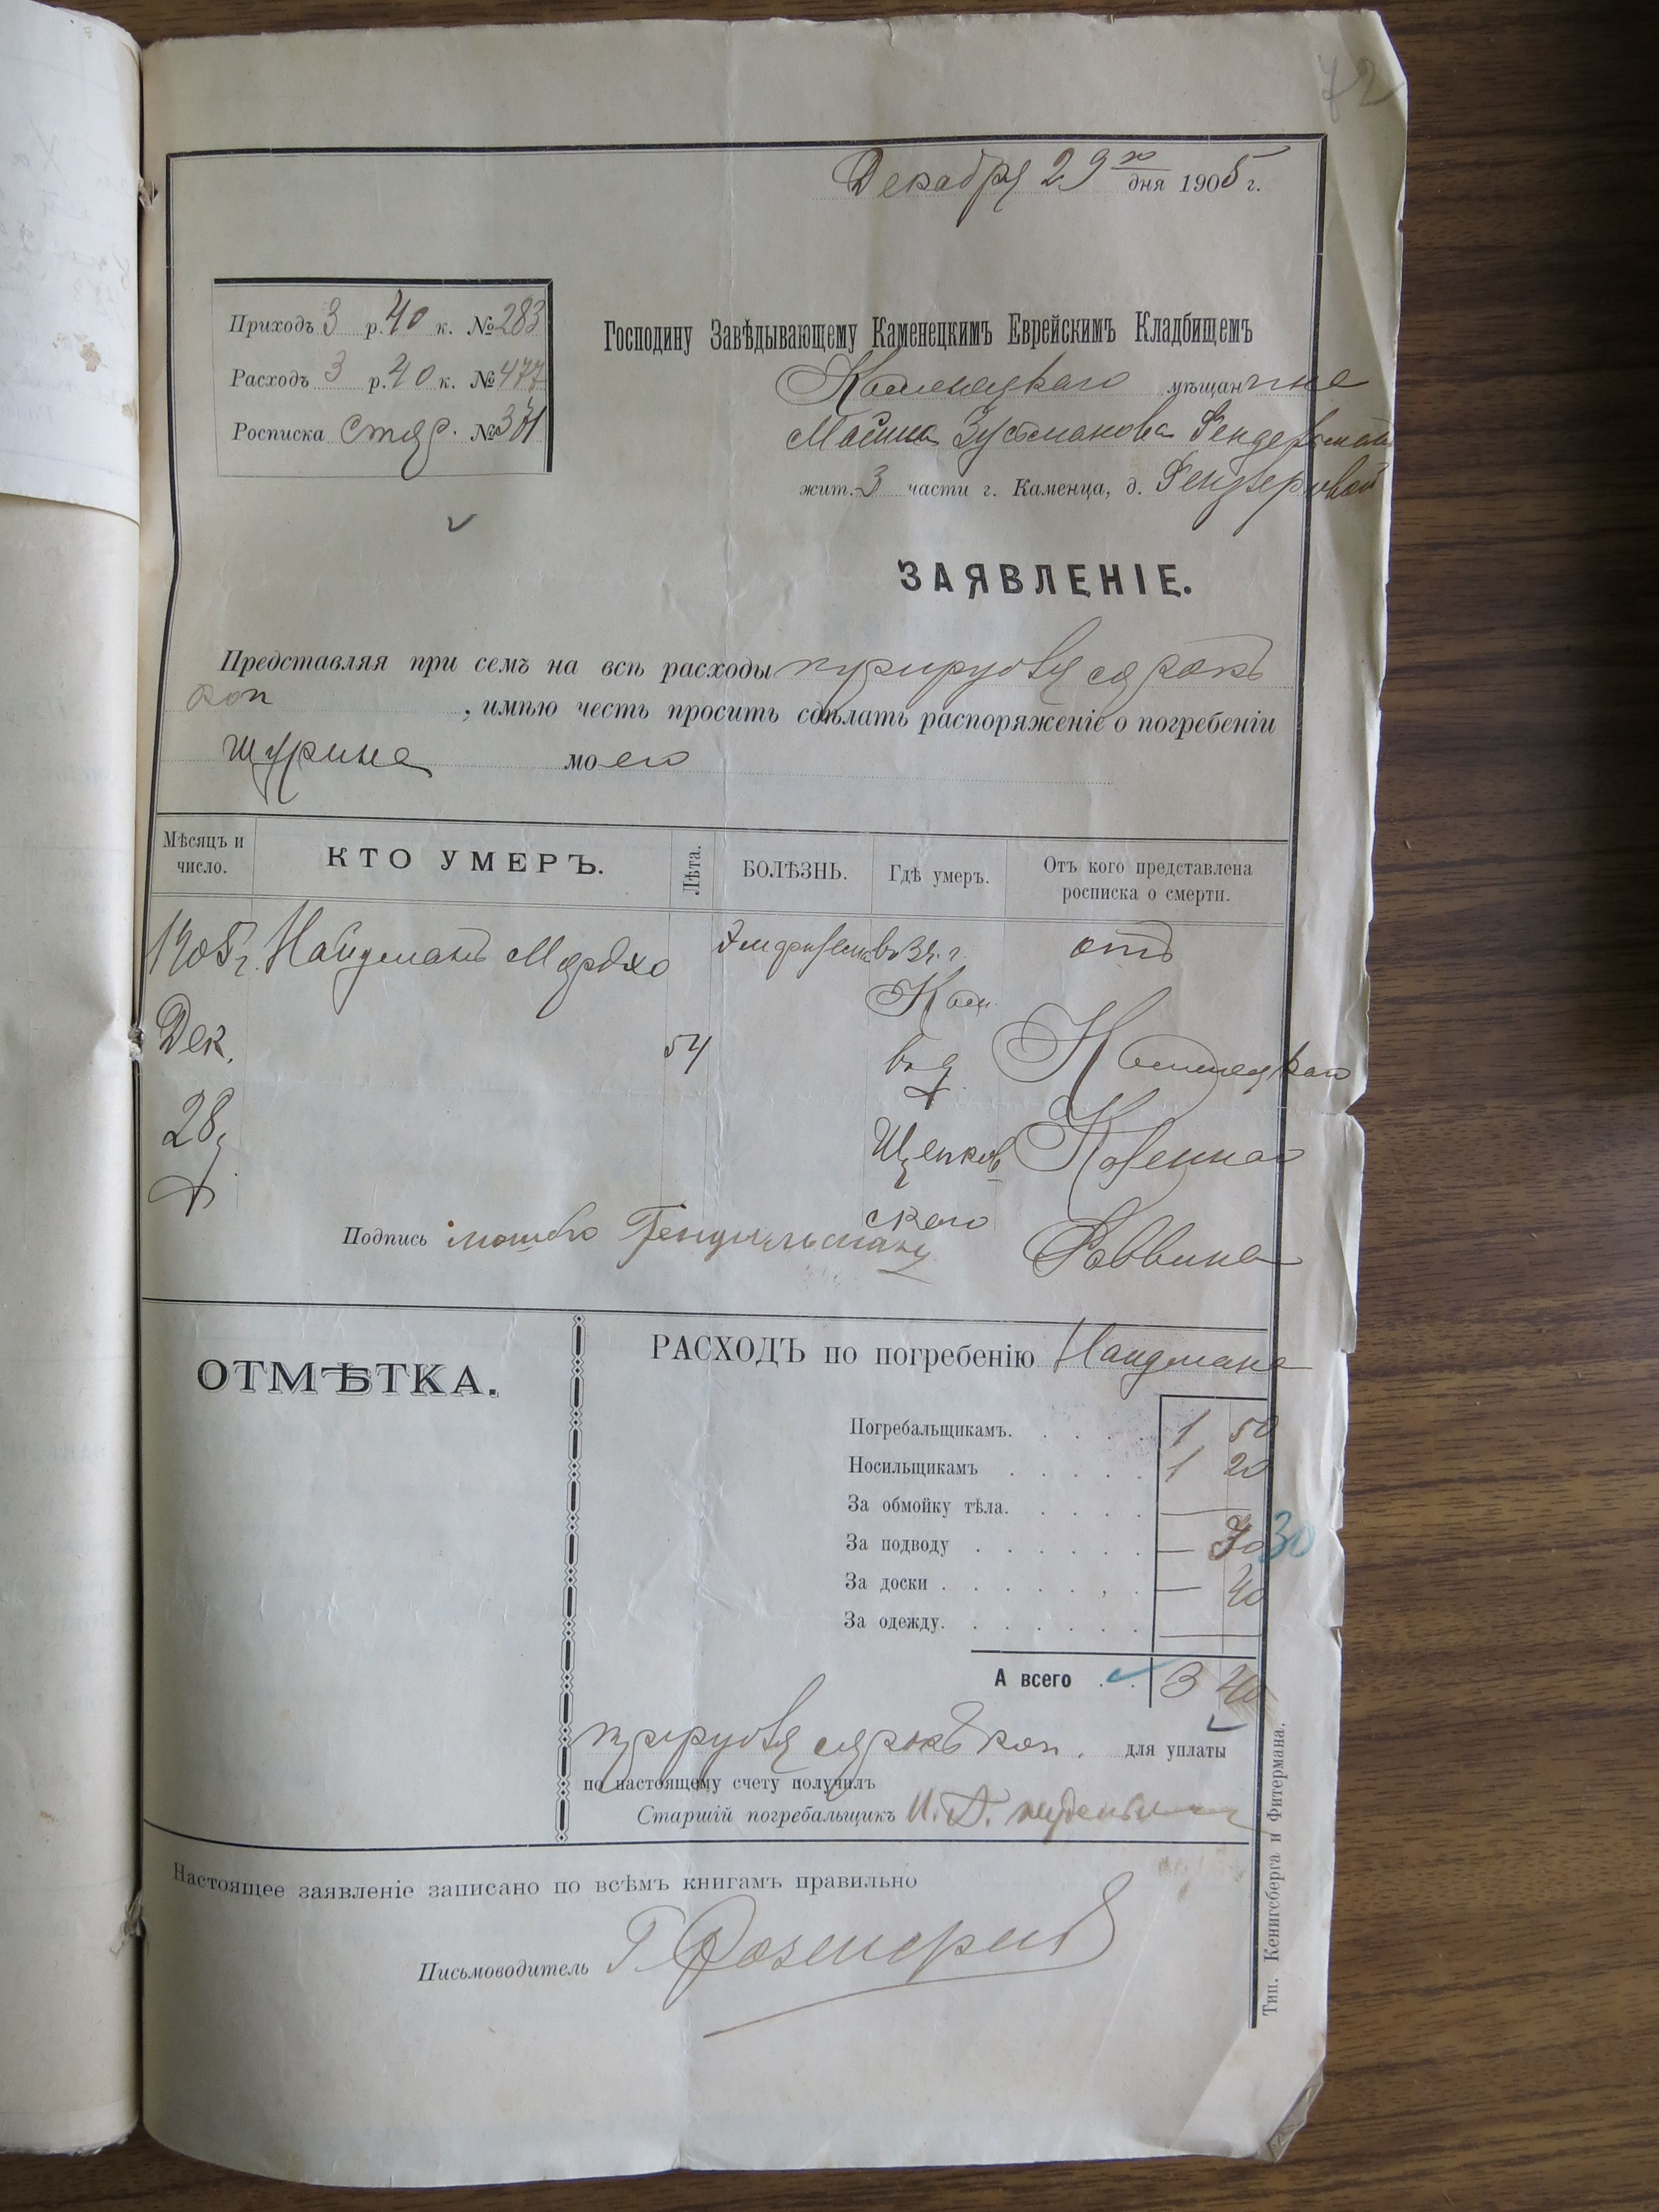 72
Декабря 29 го дня 1905 г.
Приходъ 3 р. 40 к. № 283
Расходъ 3 р. 40 к. № 477
Росписка стар. № 371
Господину Завѣдывающему Каменецкимъ Еврейскимъ Кладбищемъ
Каменецкаго мѣщанина
Зусьманова
жит. 3 части г. Каменца, д.
ЗАЯВЛЕНІЕ.
Представляя при семъ на всѣ расходы три рубля сорокъ
коп , имѣю честь просить сдѣлать распоряженіе о погребеніи
шурина моего
Мѣсяцъ и число. КТО УМЕРЪ. Лѣта. БОЛѢЗНЬ. Гдѣ умеръ. Отъ кого представлена росписка о смерти.
1905 г. Найдманъ Мордко въ 3 ч. г. отъ
Кам.
Дек. 54 въ д. Каменецкаго
28 Щепков Казеннаго
ского
Раввина
Подпись
ОТМѢТКА.
РАСХОДЪ по погребенію Найдмана
Погребальщикамъ. . . . . 1 50
Носильщикамъ . . . . . 1 20
За обмойку тѣла. . . . . —
За подводу . . . . . . — 30 30
За доски . . . . . . . — 40
За одежду. . . . . . . —
А всего . . 3 40
три рубля сорокъ коп. для уплаты
по настоящему счету получилъ
Старшій погребальщикъ
Настоящее заявленіе записано по всѣмъ книгамъ правильно
Письмоводитель
Тип. Кенигсберга и Фитермана.